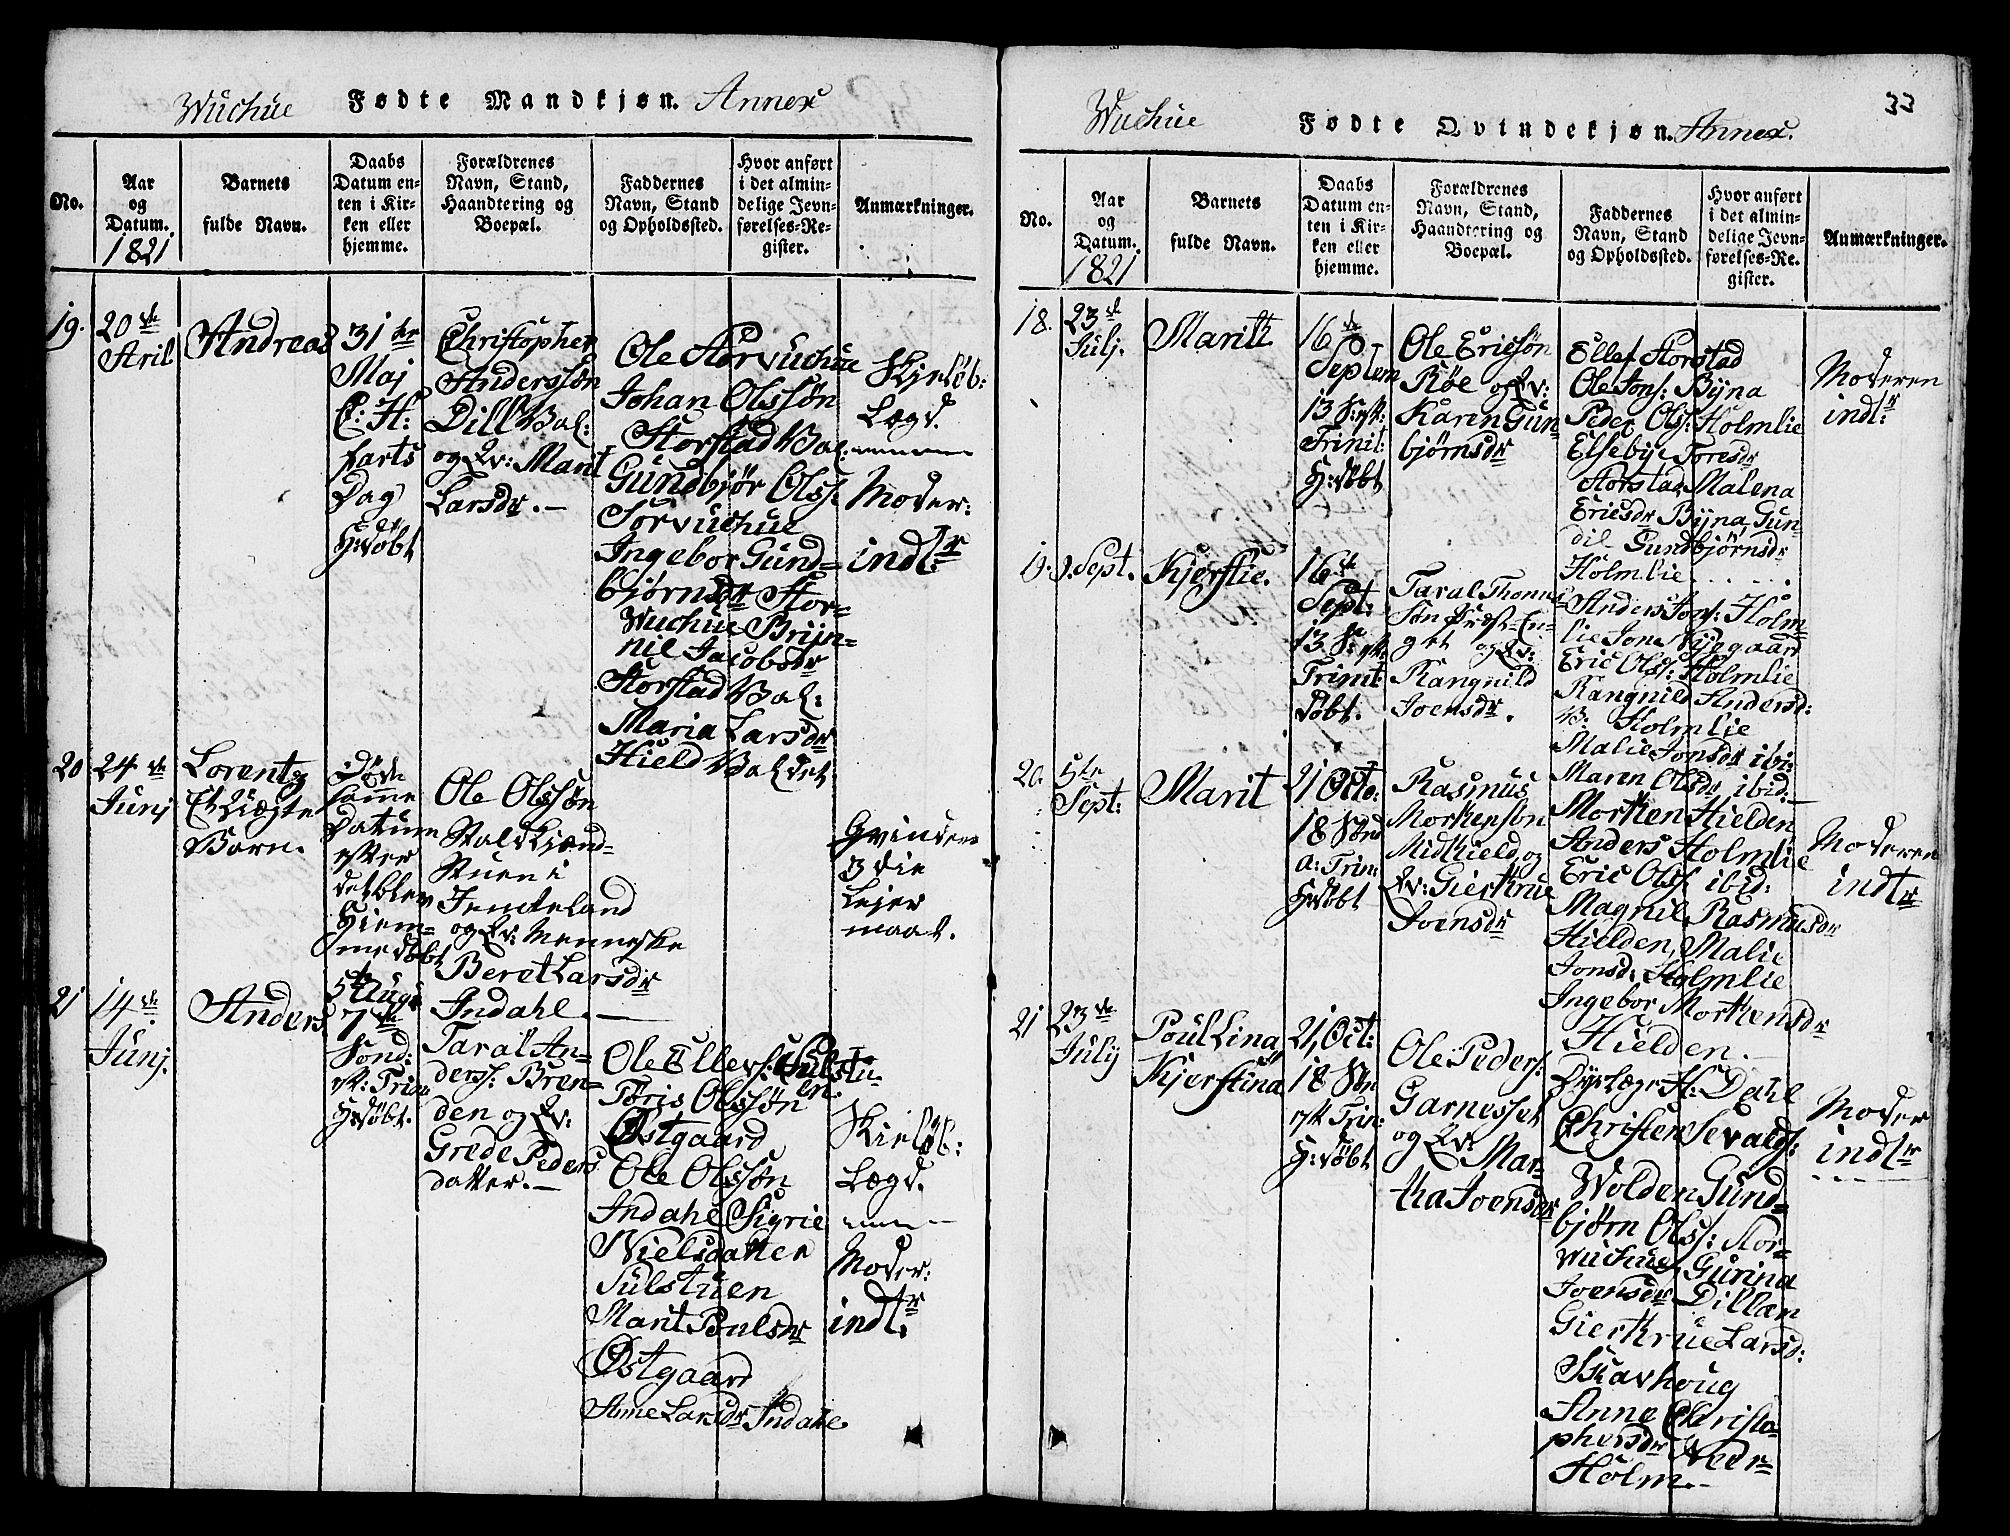 Wuchue Fødte Mandkjøn. Annex
No.
Aar
og
Datum.
1821
Barnets
fulde Navn.
Daabs
Datum en-
ten i Kir-
ken eller
hjemme.
Forældrenes
Navn, Stand,
Haandtering og
Boepæl.
Faddernes
Navn, Stand
og Opholdssted.
Hvor anført
i det almin-
delige Jevn-
førelses-Re-
gister.
Anmærkninger.
19.
20de
Aril
Andreas
31te
Maj
C: H:
farts
Dag
H: døbt
Christopher
Anderssøn
Dill Val:
og Qv: Marit
Larsdr. –
Ole Storvuchue
Johan Olssøn
Storstad Val:
Gundbjør Olss:
Storvuchue
Ingebor Gund=
bjørnsdr Stor=
Wuchue Brÿn=
nil Jacobsdr
Storstad Val:
Maria Larsdr
Hield Val det
Kjeløb:
Lægd.
Moder:
indlr
20
24de
Junj
Lorentz
Et Uægte
Barn.
Døde
samme
Datum
efter
det blev
Hiem=
me døbt
Ole Olssøn
Stald
Stuen i
Jemteland
og Qv: Menneske
Beret Larsdr
Indahl. –
Qvindens
3die
Lejer
maal.
21
14de
Junj.
Anders
5te Aug:
7de
Sønd:
eft: Trini
H: døbt.
Taral An=
derss: Bren=
den og Qv:
Grede Peders
datter. –
Ole Ellevs: Sulstu=
en.
Toris Olssøn
Østgaard
Ole Olssøn
Indahl Sigrie
Nielsdatter
Sulstuen
Marit Poulsdr
Østgaard
Anne Larsdr Indahl
Kieløb:
Lægd.
Moder:
indtr
33
Wuchue Fødte Qvindekjøn. Annex.
No.
Aar
og
Datum.
1821
Barnets
fulde Navn.
Daabs
Datum en-
ten i Kir-
ken eller
hjemme.
Forældrenes
Navn, Stand,
Haandtering og
Boepæl.
Faddernes
Navn, Stand
og Opholdssted.
Hvor anført
i det almin-
delige Jevn-
førelses-Re-
gister.
Anmærkninger.
18.
23de
Julj.
Marith
16de
Septem
13 S: eft:
Trinit:
H: døbt
Ole Ericsøn
Røe og Qv:
Karen Gun=
bjørnsdr
Ellef Storstad
Ole Jons: Bÿna
Peder Olss: Holmlie
Elsebÿe Toresdr
Storstad Malena
Ericsdr Bÿna Gun
dil Gundbjørnsdr
Holmlie
Moderen
indlr
19.
9. Sept.
Kjerstie.
16de
Sept:
13 S: eft:
Trinit:
døbt.
Taral Thomæ
Søn Præst En=
get og Qv:
Rangnild
Joensdr.
Anders Jons: Holm=
lie Jone Nÿegaard
Eric Olss: Holmlie
Rangnild Andersd:
Holmlie
Malie Jonsdr ibi:
Maren Olsdr ibid: –
20.
5te
Sept:
Marit
21 Octo:
18 Sønd
a: Trin:
H: døbt
Rasmus
Mortensøn
Midthield og
Qv: Giertrue
Joensdr
Morten Hielden
Anders Holmlie
Eric Olss: ibid:
Magnil Rasmusdr
Hielden, Malie
Jonsd: Holmlie
Ingebor Mortensdr
Hielden. –
Moderen
indtr
21
23de
Julij
Poullina
Kjerstina
21, Oct:
18 Søn
eft Trin:
H: døbt
Ole Peders:
Garnesset
og Qv: Mar=
tha Joensdr
Dyrlæge H: Dahl
Christen Sevalds:
Wolden Gund=
bjørn Olss: Stor=
Wuchue, Gurina
Joensdr Dillæn
Giertrue Larsd:
Skavhoug
Anne Christo=
phersdr Neder=
Holm. –
Moder
indlr